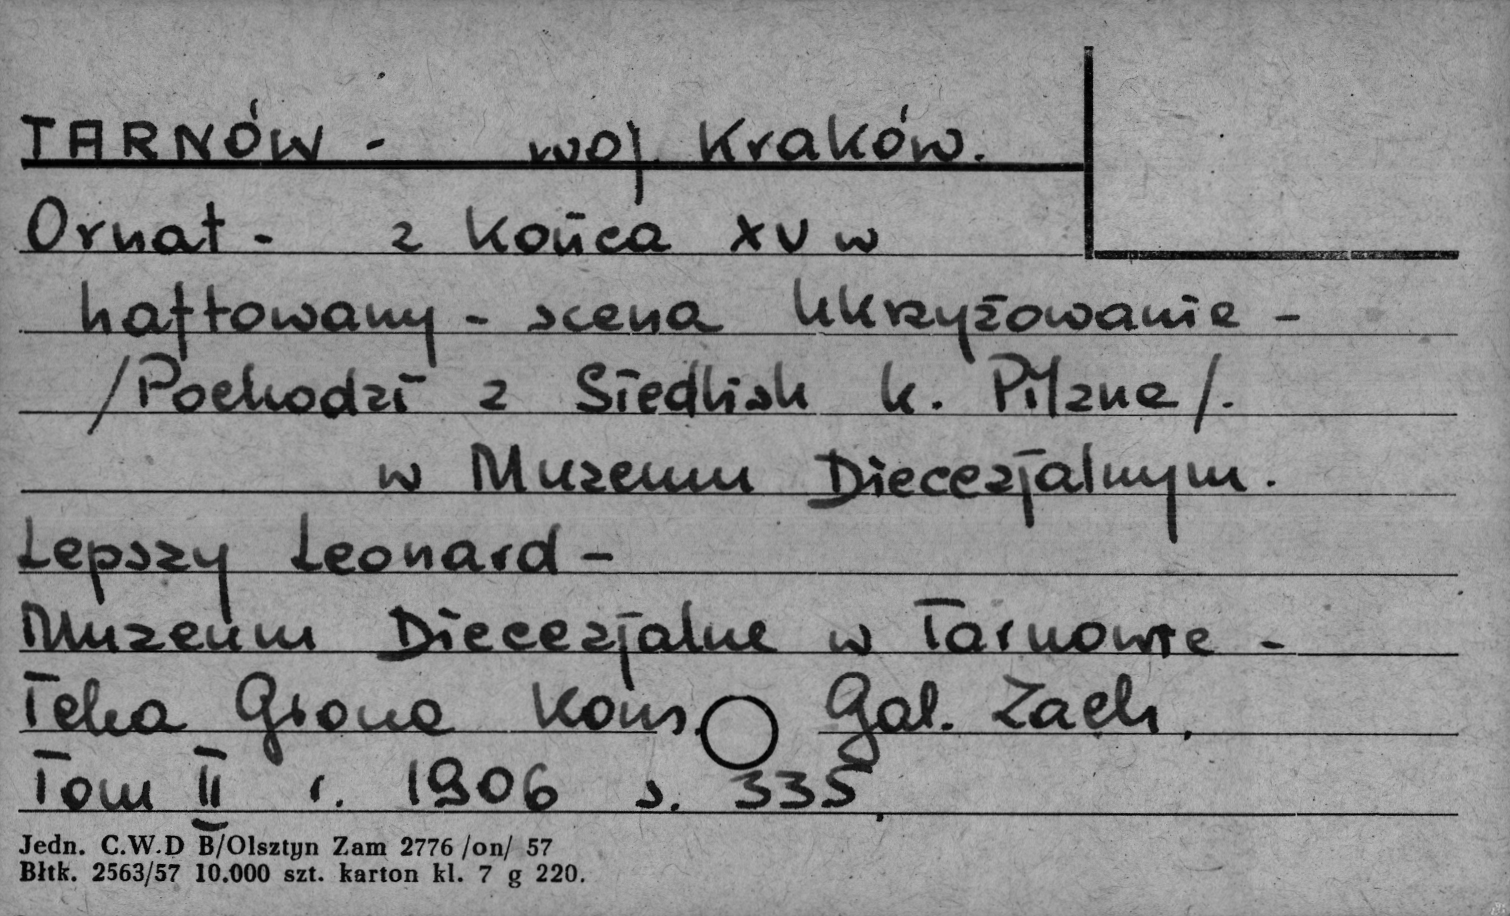 TARNÓW - woj. Kraków.
Ornat - z końca XV w
haftowany - scena Ukrzyżowania -
/Pochodzi z Siedlisk k. Pilzna/.
w Muzeum Diecezjalnym.
Łepszy Leonard -
Muzeum Diecezjalne w Tarnowie -
Teka Grona Kons. Gal. Zach.
Tom II r. 1906 s. 335.
Jedn. C.W.D B/Olsztyn Zam 2776 /on/ 57
Błtk. 2563/57 10.000 szt. karton kl. 7 g 220.